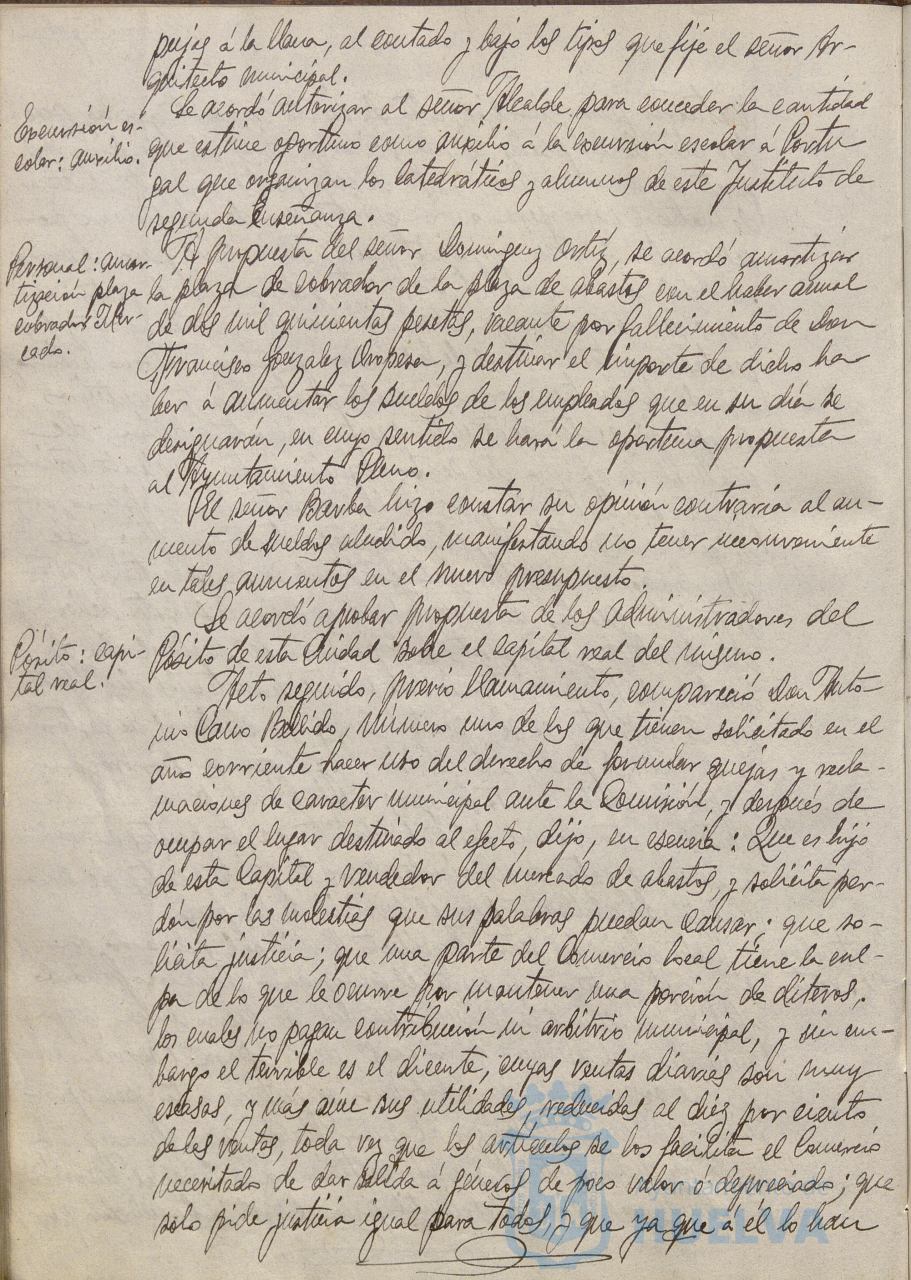 pujas á la llana, al contado y bajo los tipos que fije el señor Ar-
quitecto municipal.
Excursión es-
colar: auxilio.
Se acordó autorizar al señor Alcalde para conceder la cantidad
que estime oportuno como auxilio á la excursión escolar á Portu
gal que organizan los Catedráticos y alumnos de este Instituto de
segunda Enseñanza.
Personal: amor-
tización plaza
cobrador Mer-
cado.
A propuesta del señor Dominguez Ortiz, se acordó amortizar
la plaza de cobrador de la plaza de abastos con el haber anual
de dos mil quinientas pesetas, vacante por fallecimiento de Don
Francisco Gonzalez Oropesa, y destinar el importe de dicho ha
ber á aumentar los sueldos de los empleados que en su día se
designarán, en cuyo sentido se hará la oportuna propuesta
al Ayuntamiento Pleno.
El señor Barba hizo constar su opinión contraria al au-
mento de sueldos aludido, manifestando no tener inconveniente
en tales aumentos en el nuevo presupuesto.
Pósito: capi-
tal real.
Se acordó aprobar propuesta de los administradores del
Pósito de esta Ciudad sobre el capital real del mismo.
Acto seguido, previo llamamiento, compareció Don Anto-
nio Cano Bellido, número uno de los que tienen solicitado en el
año corriente hacer uso del derecho de formular quejas y recla-
maciones de caracter municipal ante la Comisión, y después de
ocupar el lugar destinado al efecto, dijo, en esencia: Que es hijo
de esta Capital y vendedor del mercado de abastos, y solicita per-
dón por las molestias que sus palabras puedan causar; que so-
licita justicia; que una parte del Comercio local tiene la cul-
pa de lo que le ocurre por mantener una porción de diteros,
los cuales no pagan contribución ni arbitrio municipal, y sin em-
bargo el terrible es el dicente, cuyas ventas diarias son muy
escasas, y más aun sus utilidades, reducidas al diez por ciento
de las ventas, toda vez que los artículos se los facilita el Comercio
necesitado de dar salida á géneros de poco valor ó depreciado; que
solo pide justicia igual para todos, y que ya que á él lo han
HUELVA